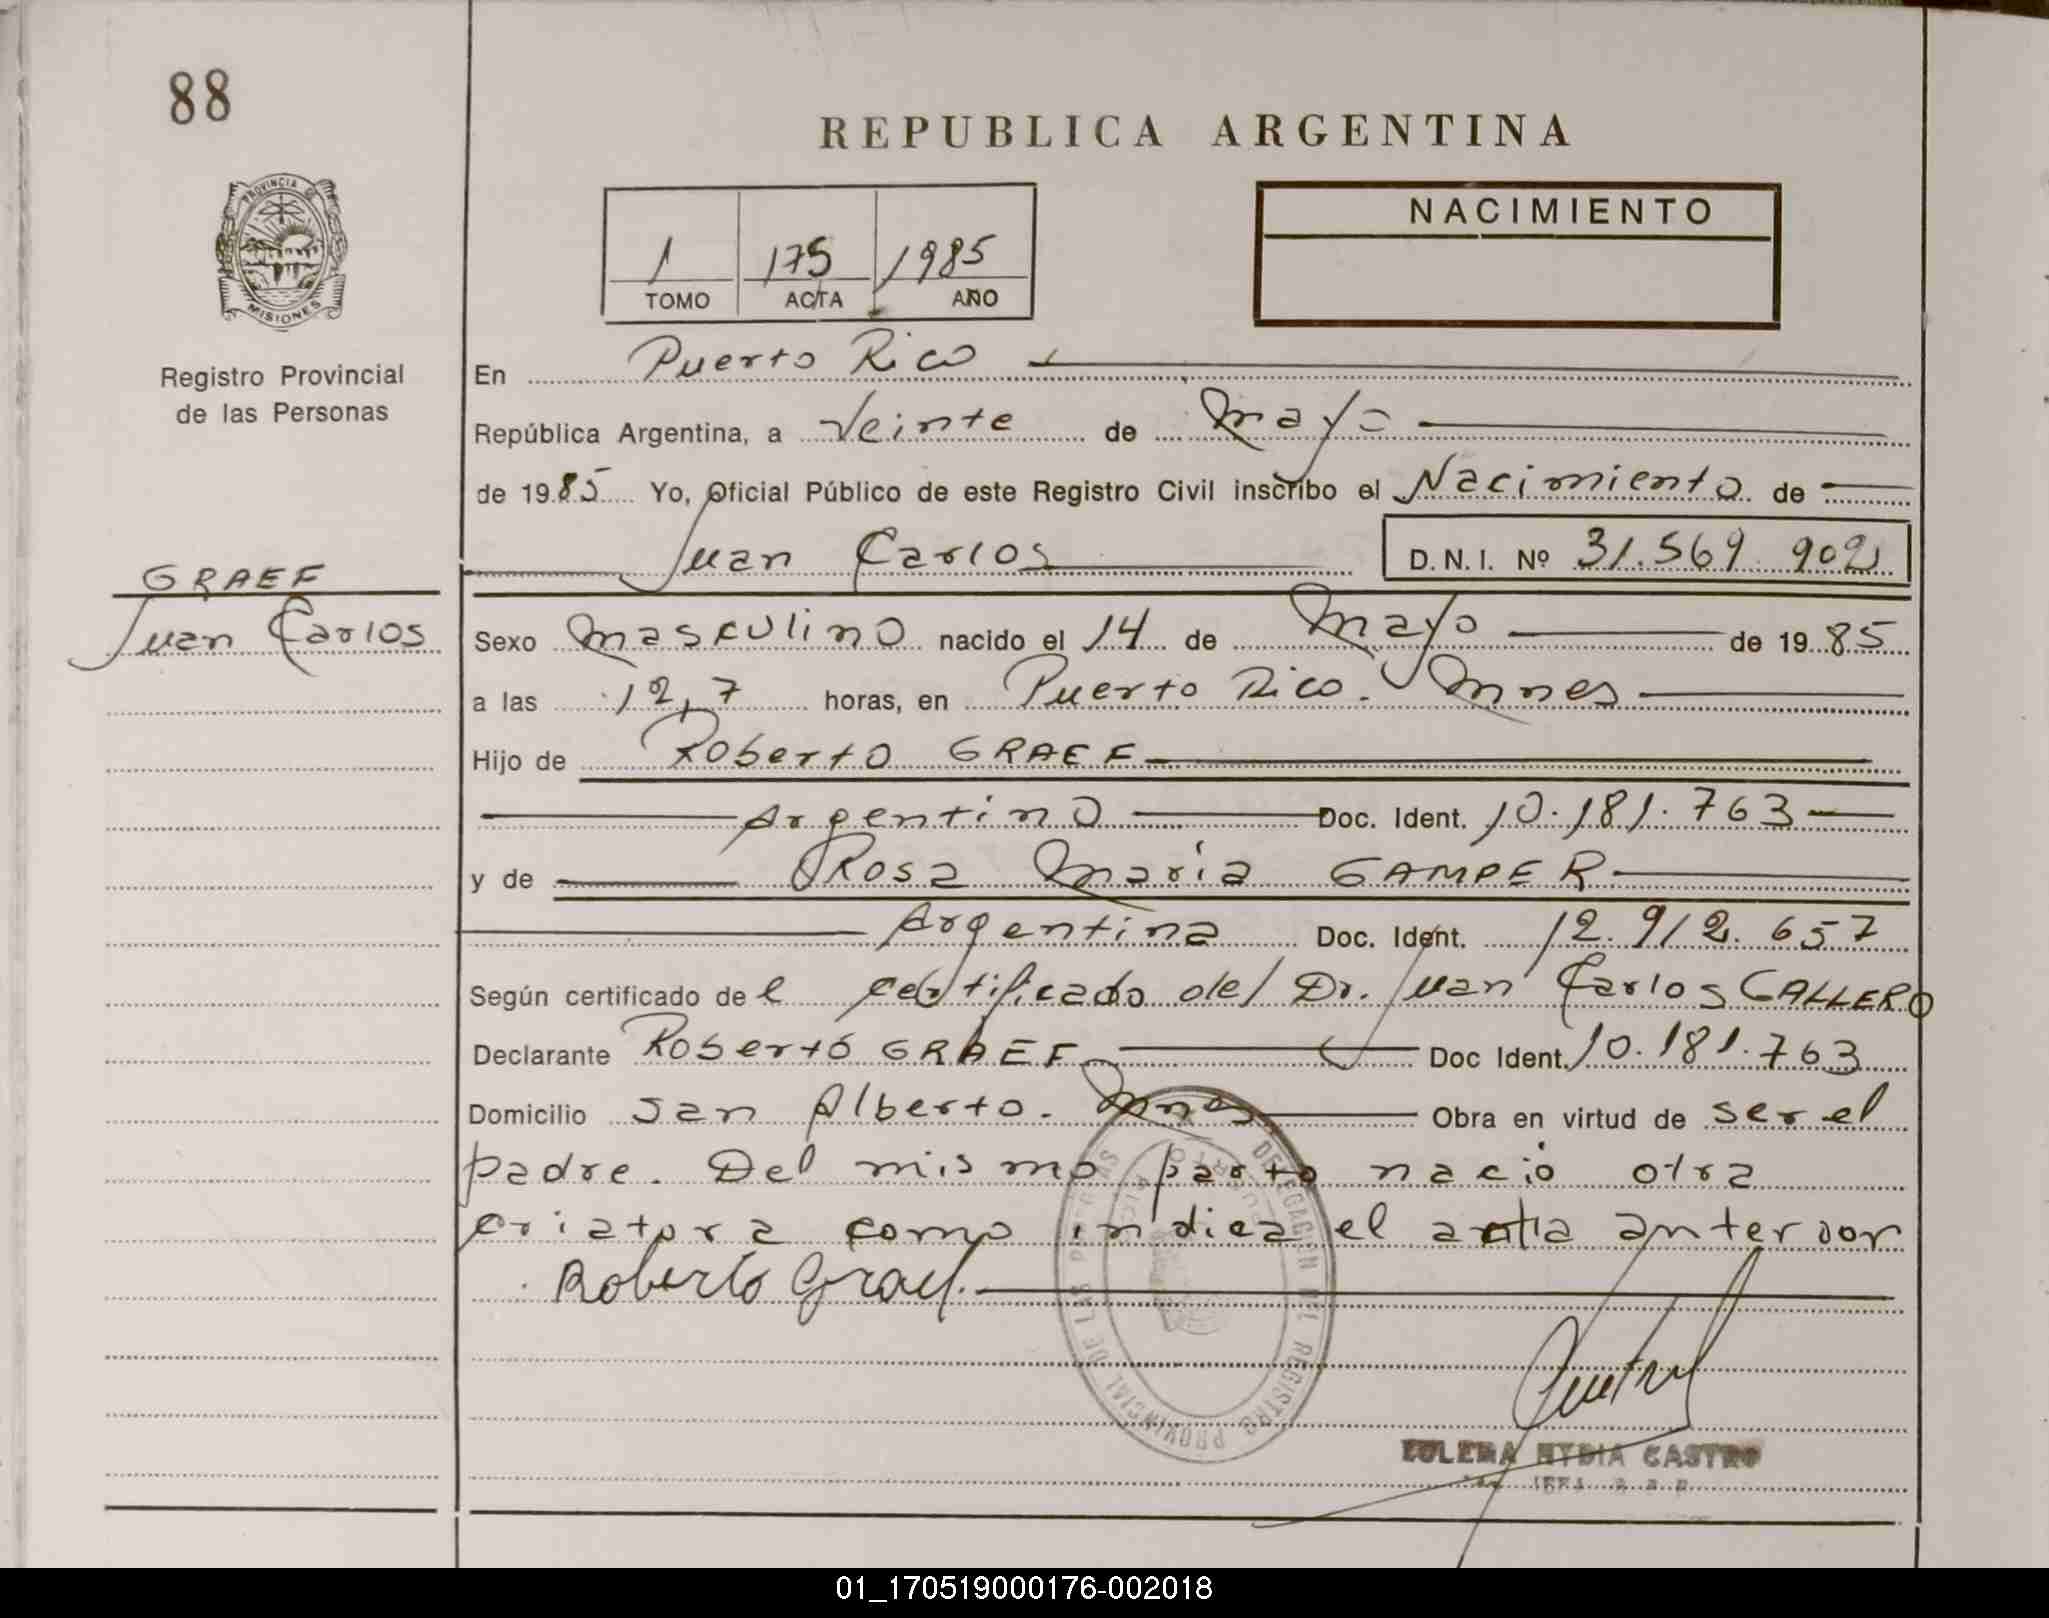 88
REPUBLICA ARGENTINA
PROVINCIA DE
MISIONES
Registro Provincial
de las Personas
1 175 1985
TOMO ACTA AÑO
NACIMIENTO
En Puerto Rico
República Argentina, a Veinte de Mayo
de 1985 Yo, Oficial Público de este Registro Civil inscribo el Nacimiento de
Juan Carlos D.N.I. Nº 31.569.902
GRAEF
Juan Carlos
Sexo Masculino nacido el 14 de Mayo de 1985
a las 12,7 horas, en Puerto Rico. Mnes
Hijo de Roberto GRAEF
Argentino Doc. Ident. 10.181.763
y de Rosa Maria GAMPER
Argentina Doc. Ident. 12.912.657
Según certificado del certificado del Dr. Juan Carlos GALLERO
Declarante Roberto GRAEF Doc Ident. 10.181.763
Domicilio San Alberto. Mnes Obra en virtud de ser el
padre. Del mismo parto nació otra
criatura como indica el acta anterior
Roberto Graef.
DELEGACION DEL REGISTRO PROVINCIAL DE LAS PERSONAS
PUERTO RICO
ZULEMA NYDIA CASTRO
01_170519000176-002018